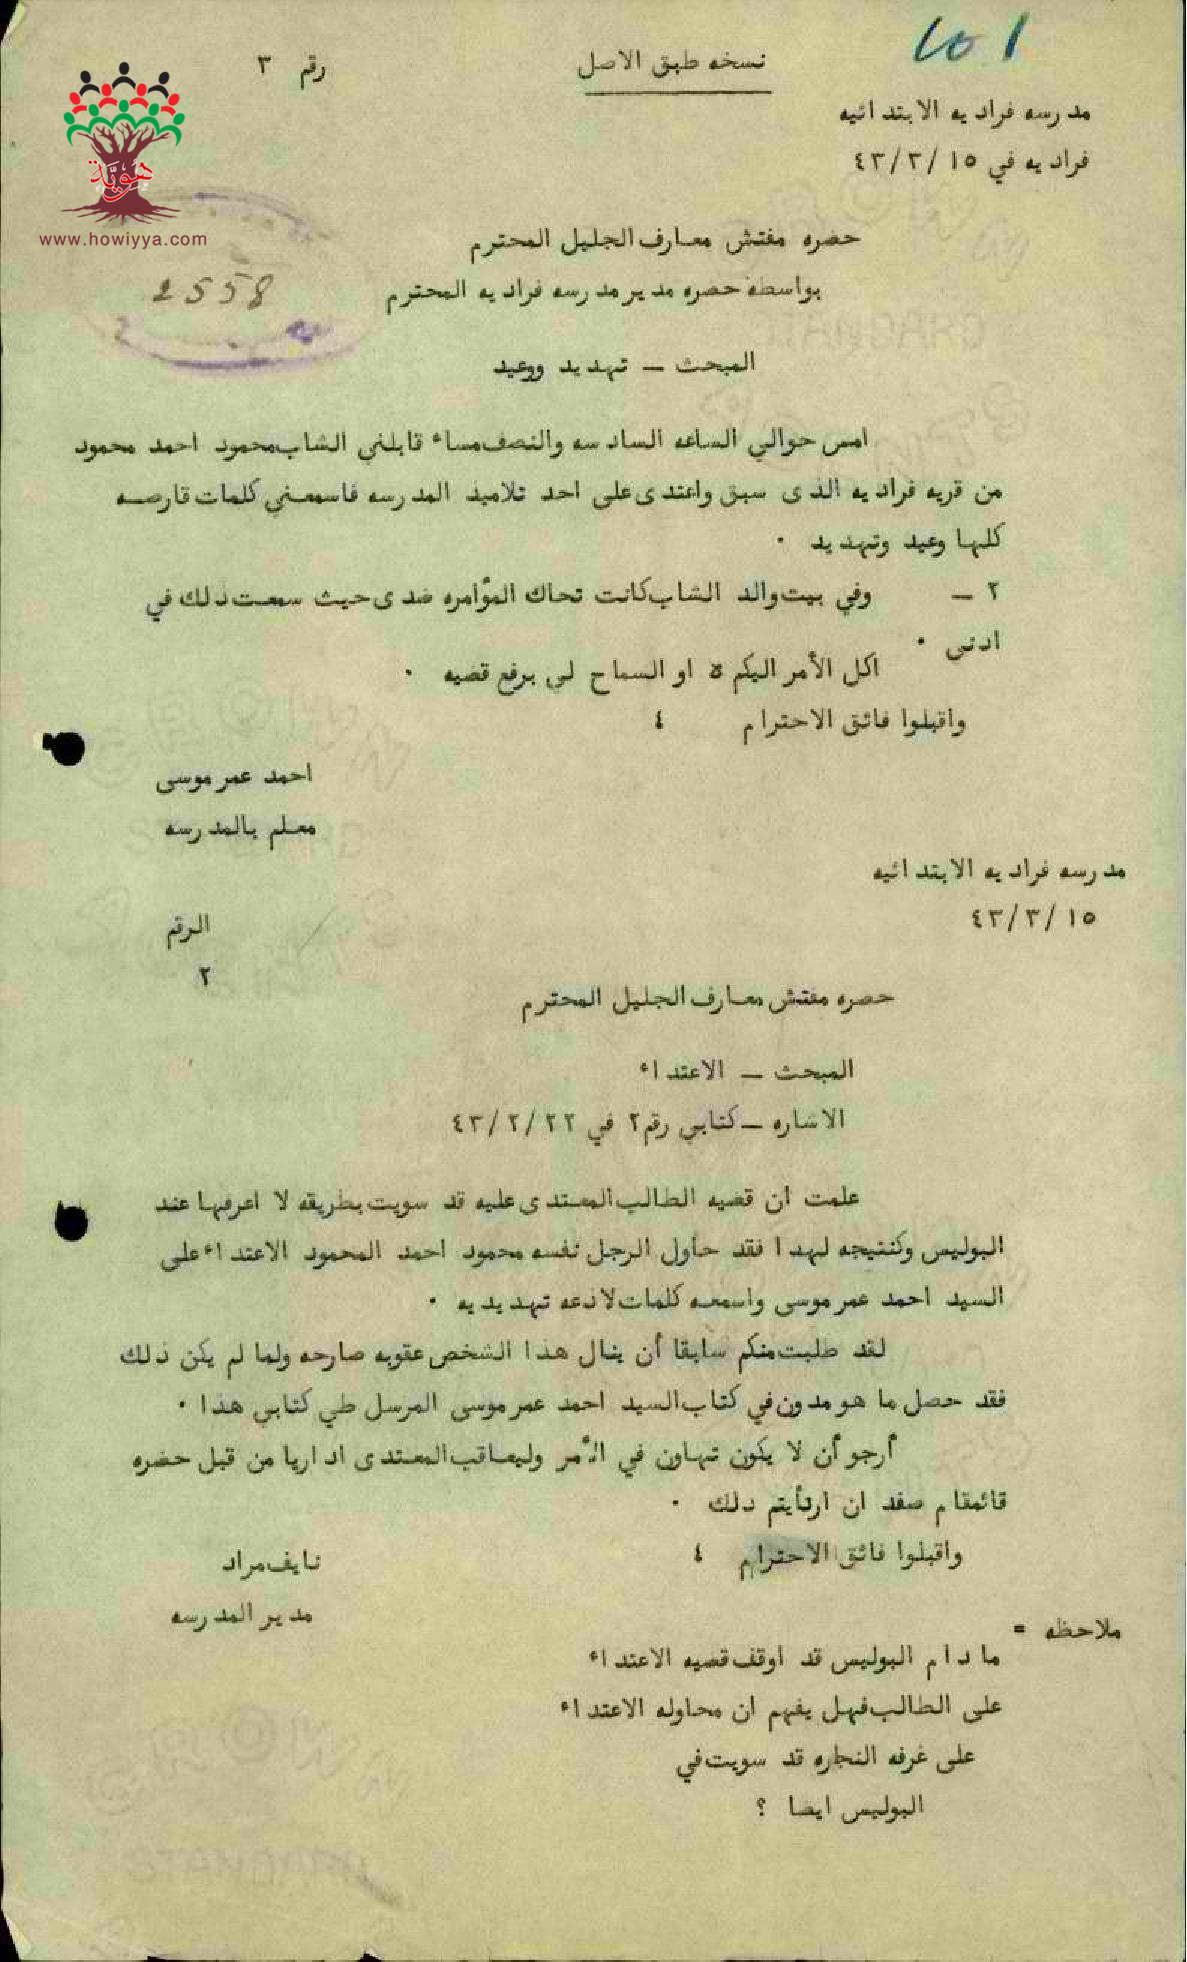 ١٥١
نسخه طبق الاصل
رقم ٣
مدرسه فراديه الابتدائيه
فراديه في ١٥/٣/٤٣
هويّة
www.howiyya.com
2558
حضره مفتش معارف الجليل المحترم
بواسطة حضره مدير مدرسه فراديه المحترم
المبحث – تهديد ووعيد
امس حوالي الساعه السادسه والنصف مساء قابلني الشاب محمود احمد محمود
من قريه فراديه الذى سبق واعتدى على احد تلاميذ المدرسه فاسمعني كلمات قارصه
كلها وعيد وتهديد ٠
٢ – وفي بيت والد الشاب كانت تحاك المؤامره ضدى حيث سمعت ذلك في
ادنى ٠
اكل الأمر اليكم او السماح لى برفع قضيه ٠
واقبلوا فائق الاحترام ٤
احمد عمر موسى
معلم بالمدرسه
مدرسه فراديه الابتدائيه
١٥/٣/٤٣
الرقم
٢
حضره مفتش معارف الجليل المحترم
المبحث – الاعتداء
الاشاره – كتابي رقم ٢ في ٢٢/٢/٤٣
علمت ان قضيه الطالب المعتدى عليه قد سويت بطريقه لا اعرفها عند
البوليس وكنتيجه لهدا فقد حاول الرجل نفسه محمود احمد المحمود الاعتداء على
السيد احمد عمر موسى واسمعه كلمات لاذعه تهديديه ٠
لقد طلبت منكم سابقا أن ينال هذا الشخص عقوبه صارحه ولما لم يكن ذلك
فقد حصل ما هو مدون في كتاب السيد احمد عمر موسى المرسل طي كتابي هذا ٠
أرجو أن لا يكون تهاون في الأمر وليعاقب المعتدى اداريا من قبل حضره
قائمقام صفد ان ارتأيتم دلك ٠
واقبلوا فائق الاحترام ٤
نايف مراد
مدير المدرسه
ملاحظه =
ما دام البوليس قد اوقف قضيه الاعتداء
على الطالب فهل يفهم ان محاوله الاعتداء
على غرفه النجاره قد سويت في
البوليس ايضا ؟